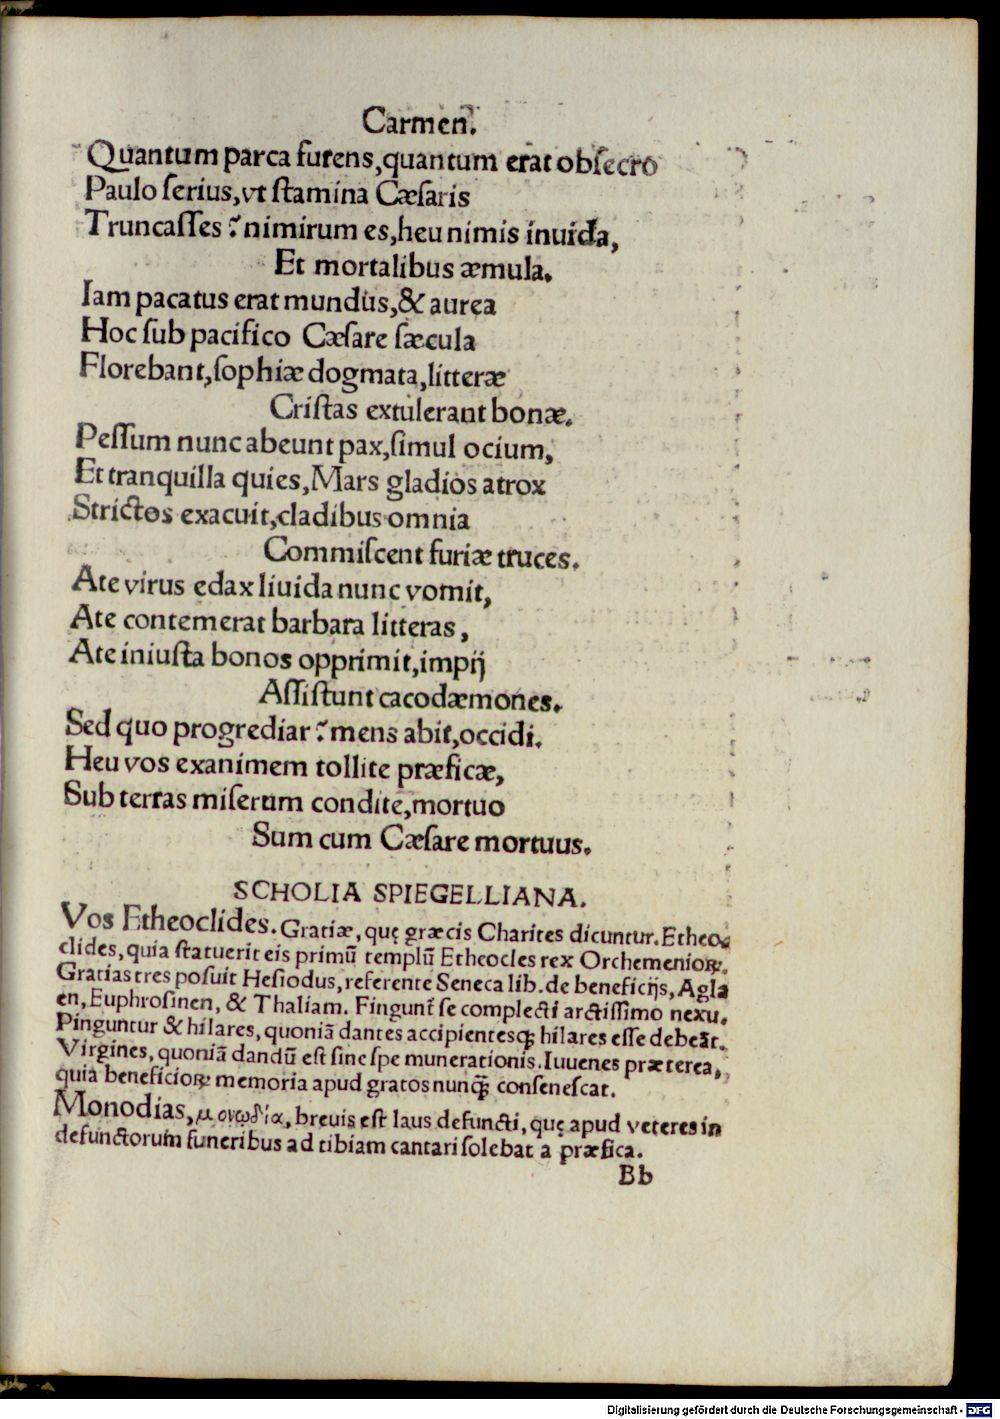 Carmen.
Quantum parca furens, quantum erat obſecro
Paulo ſerius, vt ſtamina Cæſaris
Truncaſſes? nimirum es, heu nimis inuida,
Et mortalibus æmula.
Iam pacatus erat mundus, & aurea
Hoc ſub pacifico Cæſare ſæcula
Florebant, ſophiæ dogmata, litteræ
Criſtas extulerant bonæ.
Peſſum nunc abeunt pax, ſimul ocium,
Et tranquilla quies, Mars gladios atrox
Strictos exacuit, cladibus omnia
Commiſcent furiæ truces.
Ate virus edax liuida nunc vomit,
Ate contemerat barbara litteras,
Ate iniuſta bonos opprimit, impij
Aſſiſtunt cacodæmones.
Sed quo progrediar? mens abit, occidi.
Heu vos exanimem tollite præficæ,
Sub terras miſerum condite, mortuo
Sum cum Cæſare mortuus.
SCHOLIA SPIEGELLIANA.
Vos Etheoclides. Gratiæ, quę græcis Charites dicuntur. Etheo-
clides, quia ſtatuerit eis primũ templũ Etheocles rex Orchemenioꝝ.
Gratias tres poſuit Heſiodus, referente Seneca lib. de beneficijs, Agla
en, Euphroſinen, & Thaliam. Fingunt̃ ſe complecti arctiſſimo nexu.
Pinguntur & hilares, quoniã dantes accipientesq̃ hilares eſſe debeãt.
Virgines, quoniã dandũ eſt ſine ſpe munerationis. Iuuenes præterea,
quia beneficioꝝ memoria apud gratos nunq̃ conſeneſcat.
Monodias, μονωδία, breuis eſt laus defuncti, quę apud veteres in
defunctorum funeribus ad tibiam cantari ſolebat a præfica.
Bb
Digitalisierung gefördert durch die Deutsche Forschungsgemeinschaft - DFG